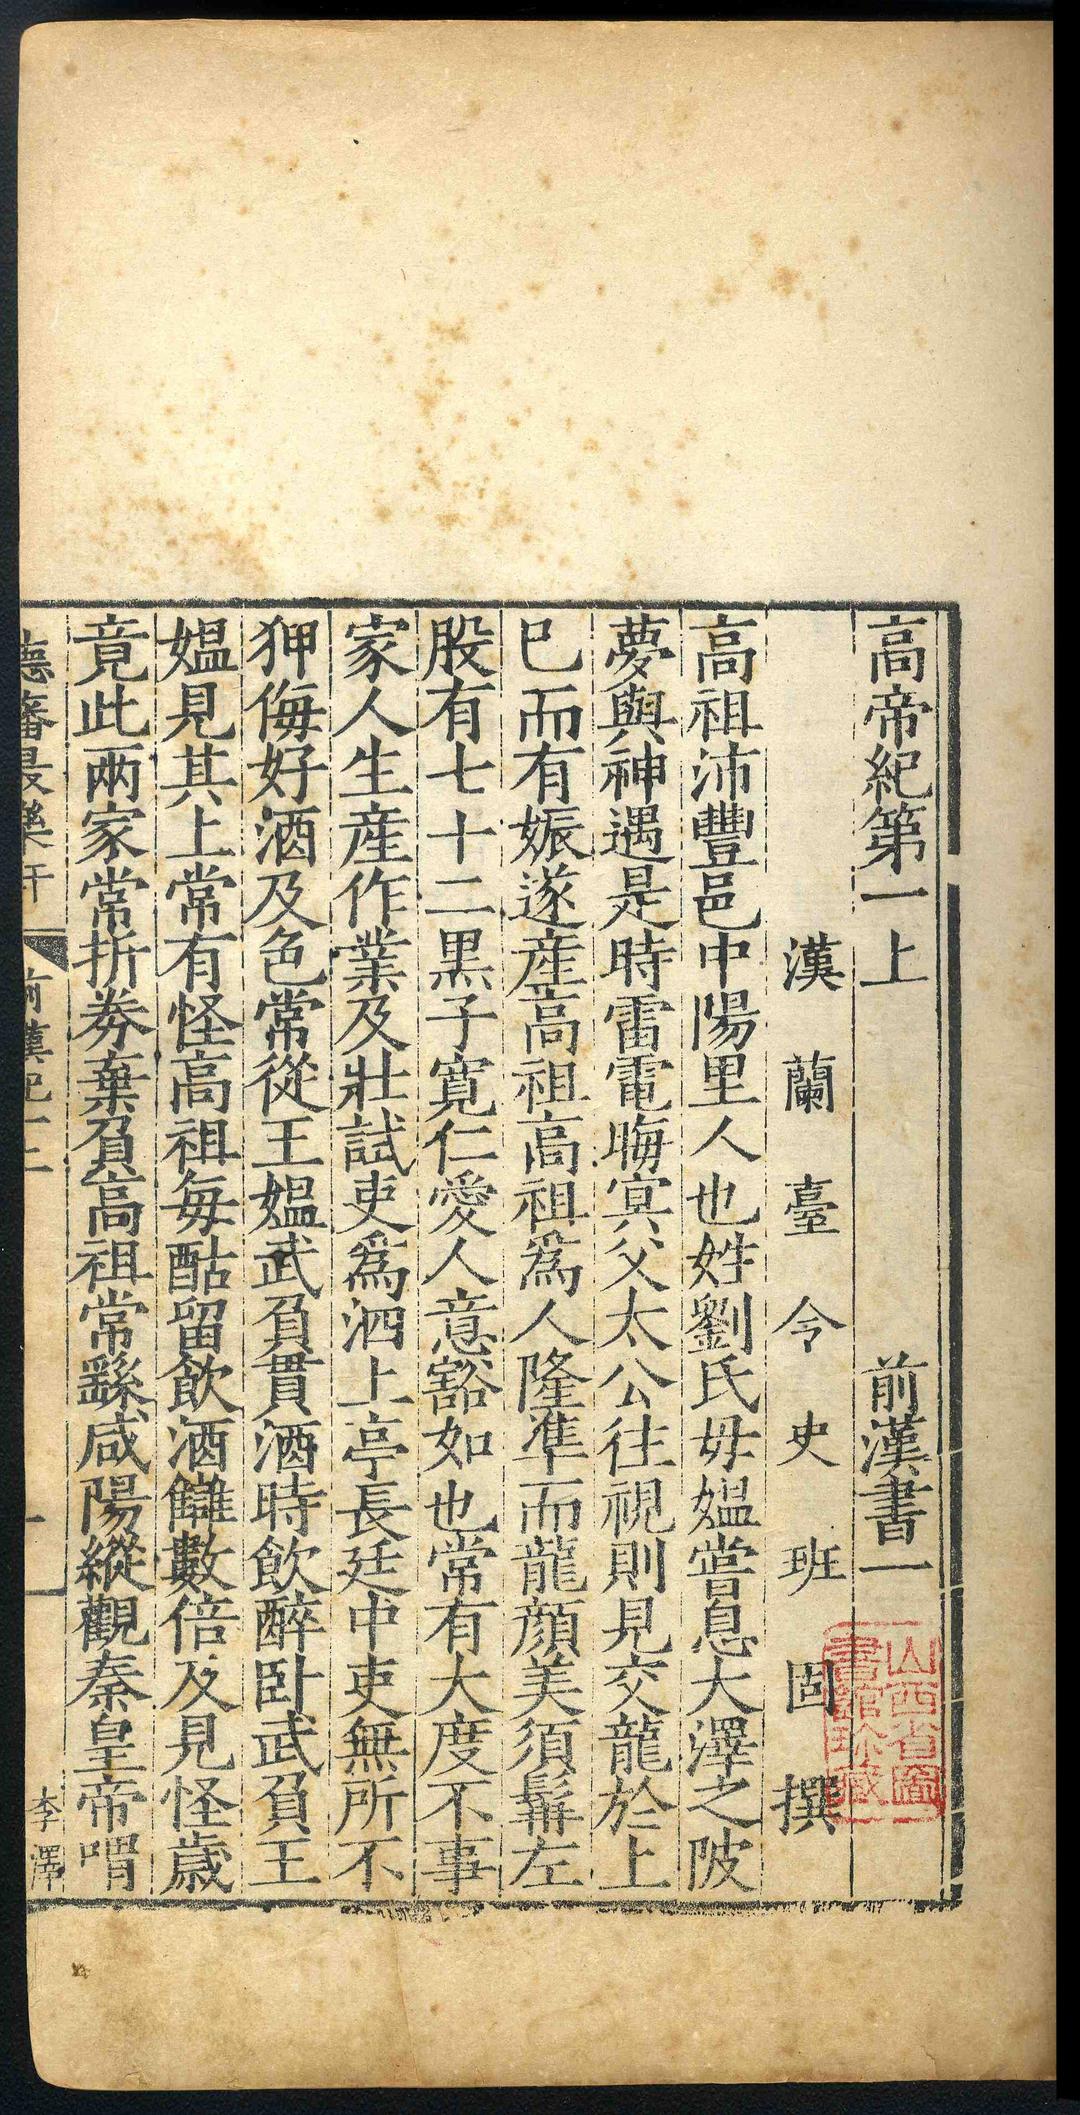 高帝紀第一上 前漢書一
漢蘭臺令史班固撰
高祖沛豐邑中陽里人也姓劉氏毋媼嘗息大澤之陂
夢與神遇是時雷電晦冥父太公往視則見交龍於上
巳而有娠遂產高祖高祖爲人隆準而龍顏美須髯左
股有七十二黑子寬仁愛人意豁如也常有大度不事
家人生產作業及壯試吏爲泗上亭長廷中吏無所不
狎侮好酒及色常從王媼武負貰酒時飲醉臥武負王
媼見其上常有怪高祖每酤留飲酒讎數倍及見怪歲
竟此兩家常折券棄負高祖常繇咸陽縱觀秦皇帝喟
德藩最樂軒
前漢紀一上
一
李澤
山西省圖
書館珍藏